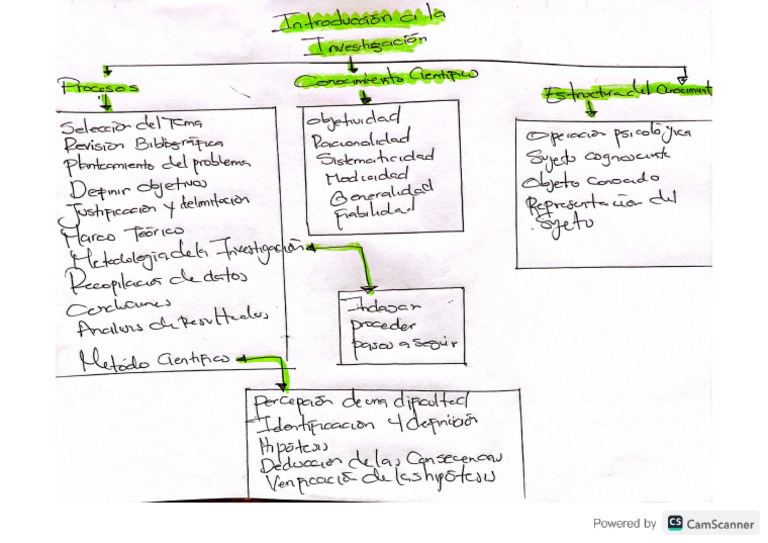 Introducción a la
Investigación
Procesos
Conocimiento Científico
Estructura del Conocimient
Selección del Tema
Revisión Bibliográfica
Planteamiento del problema
Definir objetivos
Justificación y delimitación
Marco Teórico
Metodología de la Investigación
Recopilación de datos
Conclusiones
Analisis de Resultados
Metódo Científico
Objetividad
Racionalidad
Sistematicidad
Generalidad
Fiabilidad
Operación psicológica
Sujeto cognoscente
Objeto Conocido
Representación del
Sujeto
Indagar
proceder
pasos a seguir
Percepción de una dificultad
Identificación y definición
Hipótesis
Deducción de las Consecuencias
Verificación de las hipótesis
Powered by CS CamScanner